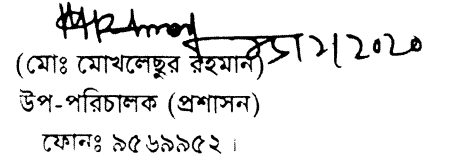 (মোঃ মোখলেছুর রহমান)
উপ-পরিচালক (প্রশাসন)
ফোনঃ ৯৫৬৯৯৫২।